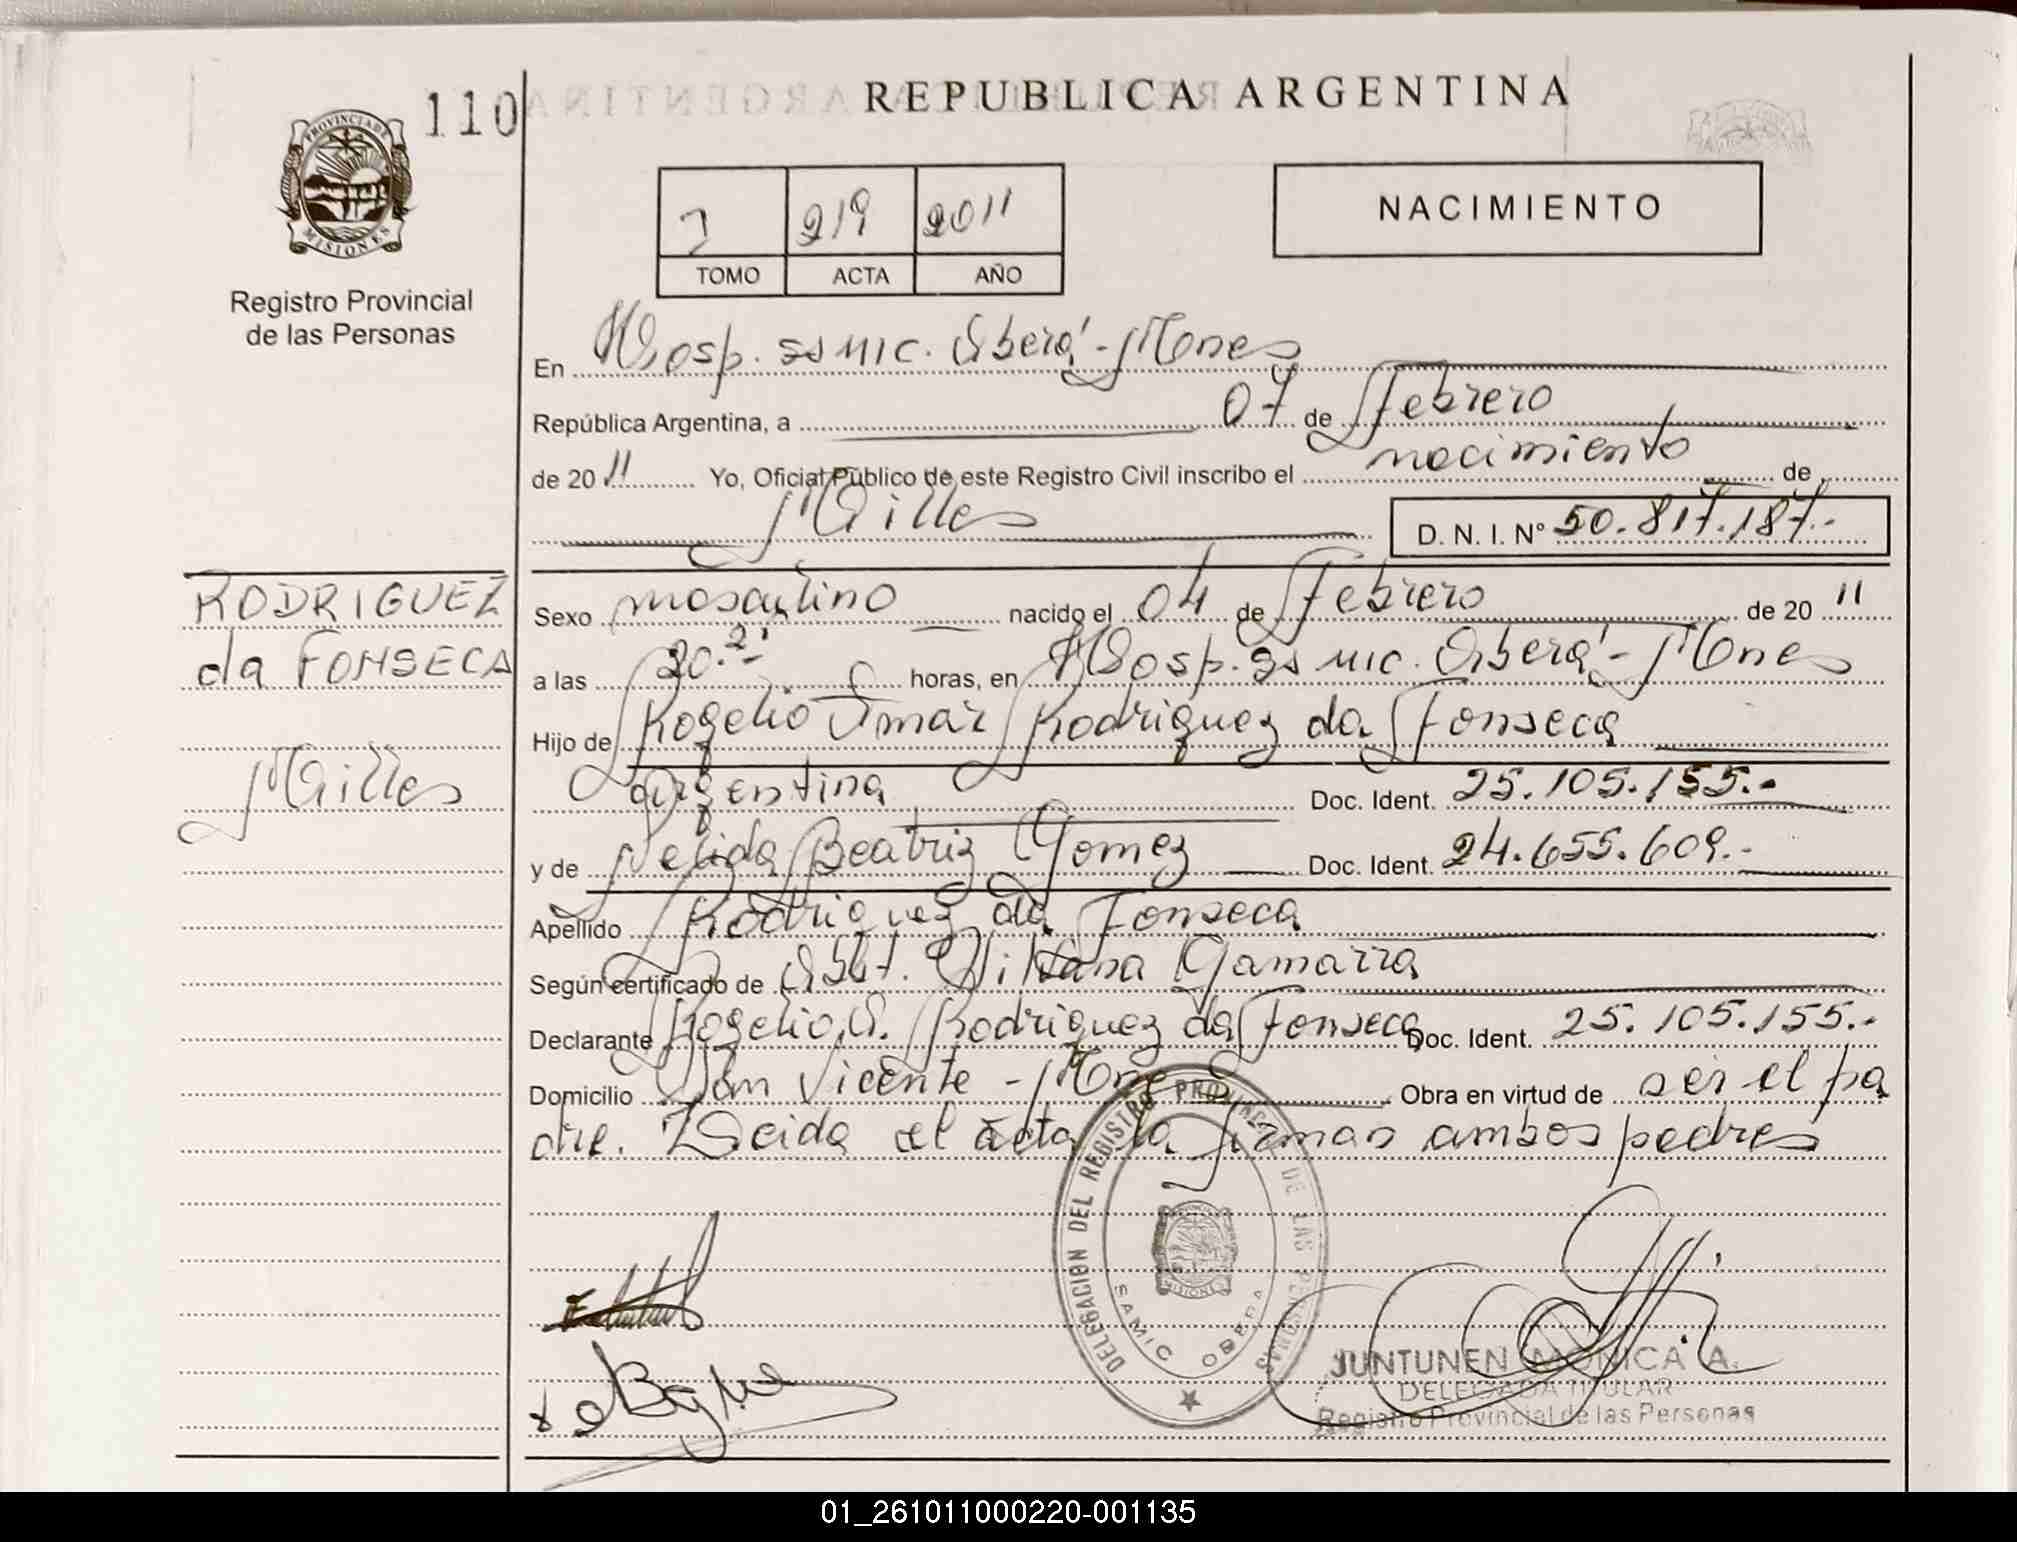 110
REPUBLICA ARGENTINA
PROVINCIA DE
MISIONES
Registro Provincial
de las Personas
I 219 2011
TOMO ACTA AÑO
NACIMIENTO
En Hosp. samic. Oberá - Mones
República Argentina, a 07 de Febrero
de 20 11 Yo, Oficial Público de este Registro Civil inscribo el nacimiento de
Milles
D. N. I. N° 50.817.187.-
RODRIGUEZ
da FONSECA
Milles
Sexo masculino nacido el 04 de Febrero de 20 11
a las 20.21 horas, en Hosp. samic. Oberá - Mones
Hijo de Rogelio Omar Rodriguez da Fonseca
argentina Doc. Ident. 25.105.155.-
y de Nelida Beatriz Gomez Doc. Ident. 24.655.609.-
Apellido Rodriguez da Fonseca
Según certificado de Obst. Viviana Gamarra
Declarante Rogelio O. Rodriguez da Fonseca Doc. Ident. 25.105.155.-
Domicilio San Vicente - Mones Obra en virtud de ser el pa
dre. Leida el acta la firman ambos padres
DELEGACION DEL REGISTRO PROVINCIAL DE LAS PERSONAS
SAMIC OBERA
MISIONES
JUNTUNEN MONICA A.
DELEGADA TITULAR
Registro Provincial de las Personas
01_261011000220-001135